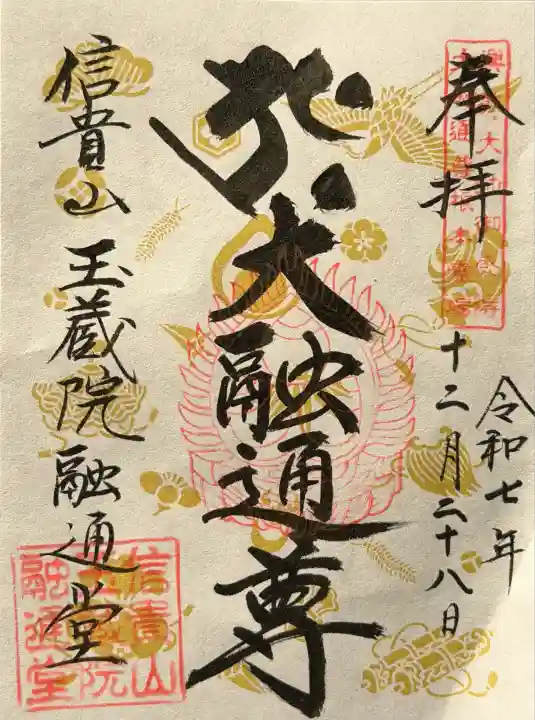 奉拝
令和七年
十二月二十八日
大融通尊
信貴山 玉蔵院 融通堂
信貴山
玉蔵院
融通堂